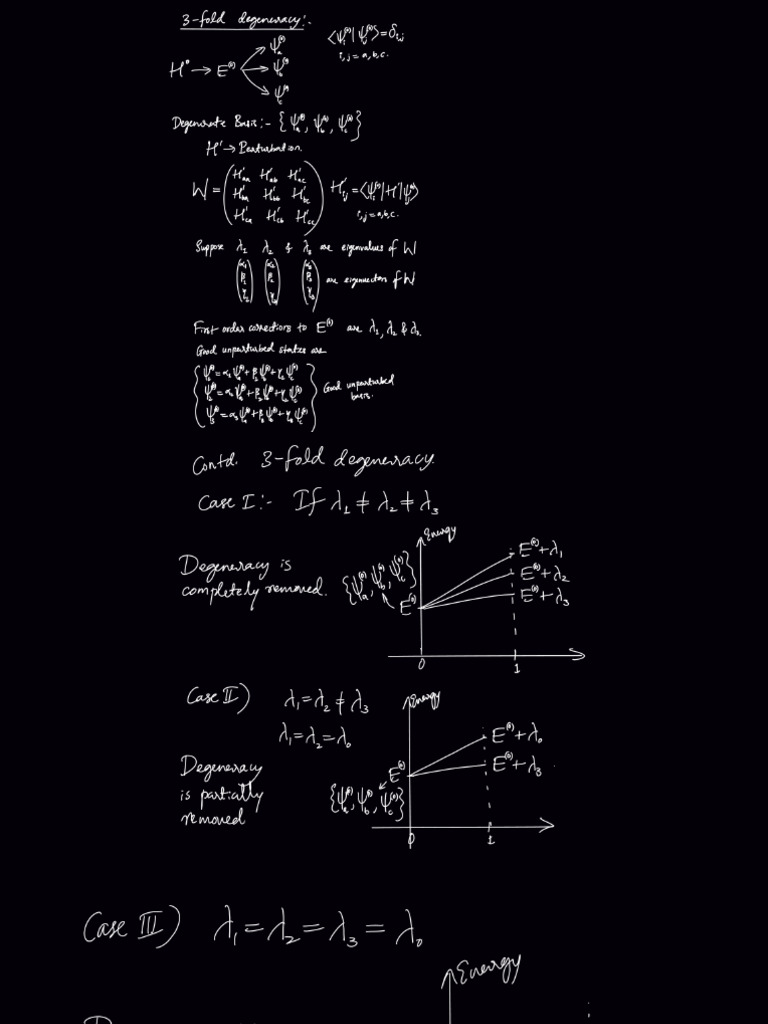 3-fold degeneracy:-
⟨ψᵢ⁽⁰⁾|ψⱼ⁽⁰⁾⟩=δᵢⱼ
i,j = a,b,c.
H⁰ → E⁽⁰⁾
ψₐ⁽⁰⁾
ψ_b⁽⁰⁾
ψ_c⁽⁰⁾
Degenerate Basis:- {ψₐ⁽⁰⁾, ψ_b⁽⁰⁾, ψ_c⁽⁰⁾}
H' → Perturbation.
W = (H'aa H'ab H'ac
H'ba H'bb H'bc
H'ca H'cb H'cc)
H'ᵢⱼ = ⟨ψᵢ⁽⁰⁾|H'|ψⱼ⁽⁰⁾⟩
i,j = a,b,c.
Suppose λ₁ λ₂ & λ₃ are eigenvalues of W
(α₁ β₁ γ₁) (α₂ β₂ γ₂) (α₃ β₃ γ₃) are eigenvectors of W
First order corrections to E⁽⁰⁾ are λ₁, λ₂ & λ₃.
Good unperturbed states are
ψ₁⁽⁰⁾ = α₁ψₐ⁽⁰⁾ + β₁ψ_b⁽⁰⁾ + γ₁ψ_c⁽⁰⁾
ψ₂⁽⁰⁾ = α₂ψₐ⁽⁰⁾ + β₂ψ_b⁽⁰⁾ + γ₂ψ_c⁽⁰⁾
ψ₃⁽⁰⁾ = α₃ψₐ⁽⁰⁾ + β₃ψ_b⁽⁰⁾ + γ₃ψ_c⁽⁰⁾
Good unperturbed
basis.
Contd. 3-fold degeneracy.
Case I:- If λ₁ ≠ λ₂ ≠ λ₃
Degeneracy is
completely removed.
Energy
{ψₐ⁽⁰⁾, ψ_b⁽⁰⁾, ψ_c⁽⁰⁾}
E⁽⁰⁾
E⁽⁰⁾+λ₁
E⁽⁰⁾+λ₂
E⁽⁰⁾+λ₃
0 1
Case II) λ₁=λ₂≠λ₃
λ₁=λ₂=λ₀
Degeneracy
is partially
removed
Energy
E⁽⁰⁾
{ψₐ⁽⁰⁾, ψ_b⁽⁰⁾, ψ_c⁽⁰⁾}
E⁽⁰⁾+λ₀
E⁽⁰⁾+λ₃
0 1
Case III) λ₁ = λ₂ = λ₃ = λ₀
Energy